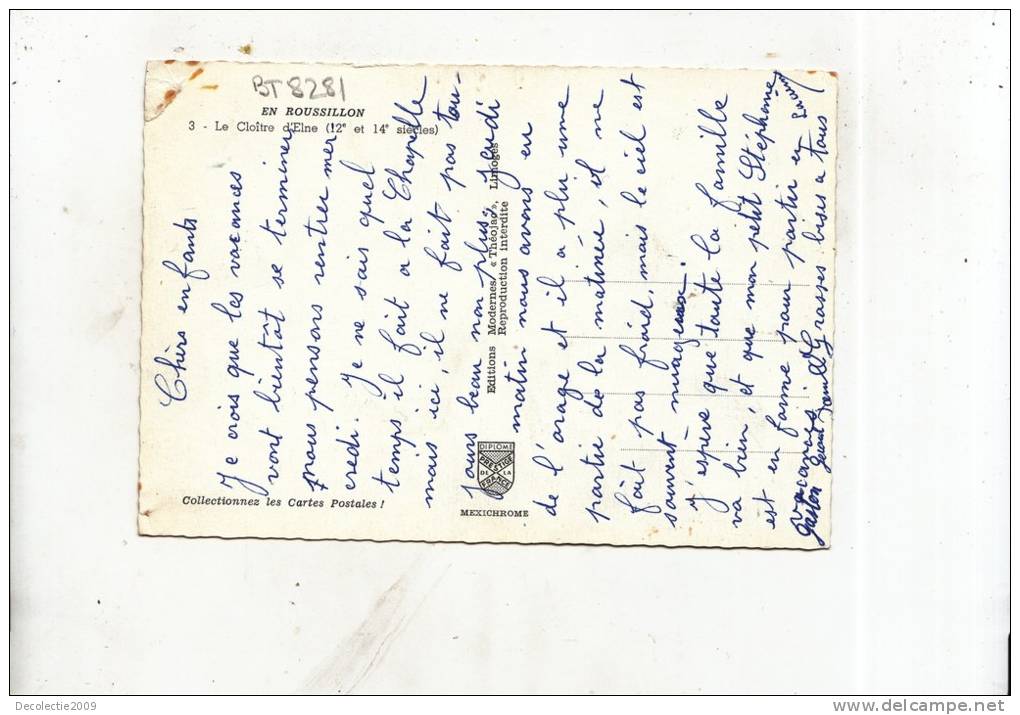 BT 8281
EN ROUSSILLON
3 - Le Cloître d'Elne (12e et 14e siècles)
Chers enfants
Je crois que les vacances
vont bientat se terminer
nous pensons rentrer mer
credi. Je ne sais quel
temps il fait a la Chapelle
mais ici, il ne fait pas tou-
jours beau non plus, jeudi
matin nous avons en
de l'orage et il a plu une
partie de la matinée, il ne
fait pas froid, mais le ciel est
souvent nuageux.
J'espère que toute la famille
va bien, et que mon petit Stéphane
est en forme pour partir en
vacances Grasses bises a tous
Gaston
Editions Modernes « Théojac », Limoges
Reproduction interdite
DIPLOME
PRESTIGE
DE LA
FRANCE
MEXICHROME
Collectionnez les Cartes Postales !
Decolectie2009
www.delcampe.net